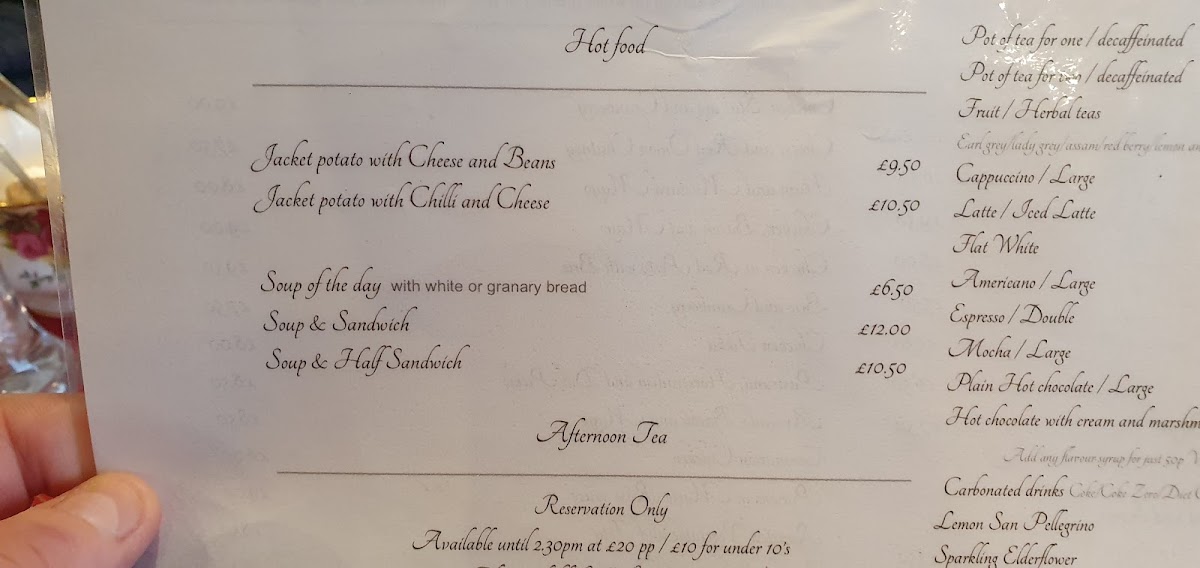 Hot food
Jacket potato with Cheese and Beans £9.50
Jacket potato with Chilli and Cheese £10.50
Soup of the day with white or granary bread £6.50
Soup & Sandwich £12.00
Soup & Half Sandwich £10.50
Afternoon Tea
Reservation Only
Available until 2.30pm at £20 pp / £10 for under 10's
Pot of tea for one / decaffeinated
Pot of tea for / decaffeinated
Fruit / Herbal teas
Earl grey/lady grey/assam/red berry/lemon an
Cappuccino / Large
Latte / Iced Latte
Flat White
Americano / Large
Espresso / Double
Mocha / Large
Plain Hot chocolate / Large
Hot chocolate with cream and marshm
Add any flavour syrup for just 50p
Carbonated drinks Coke/Coke Zero/Diet
Lemon San Pellegrino
Sparkling Elderflower